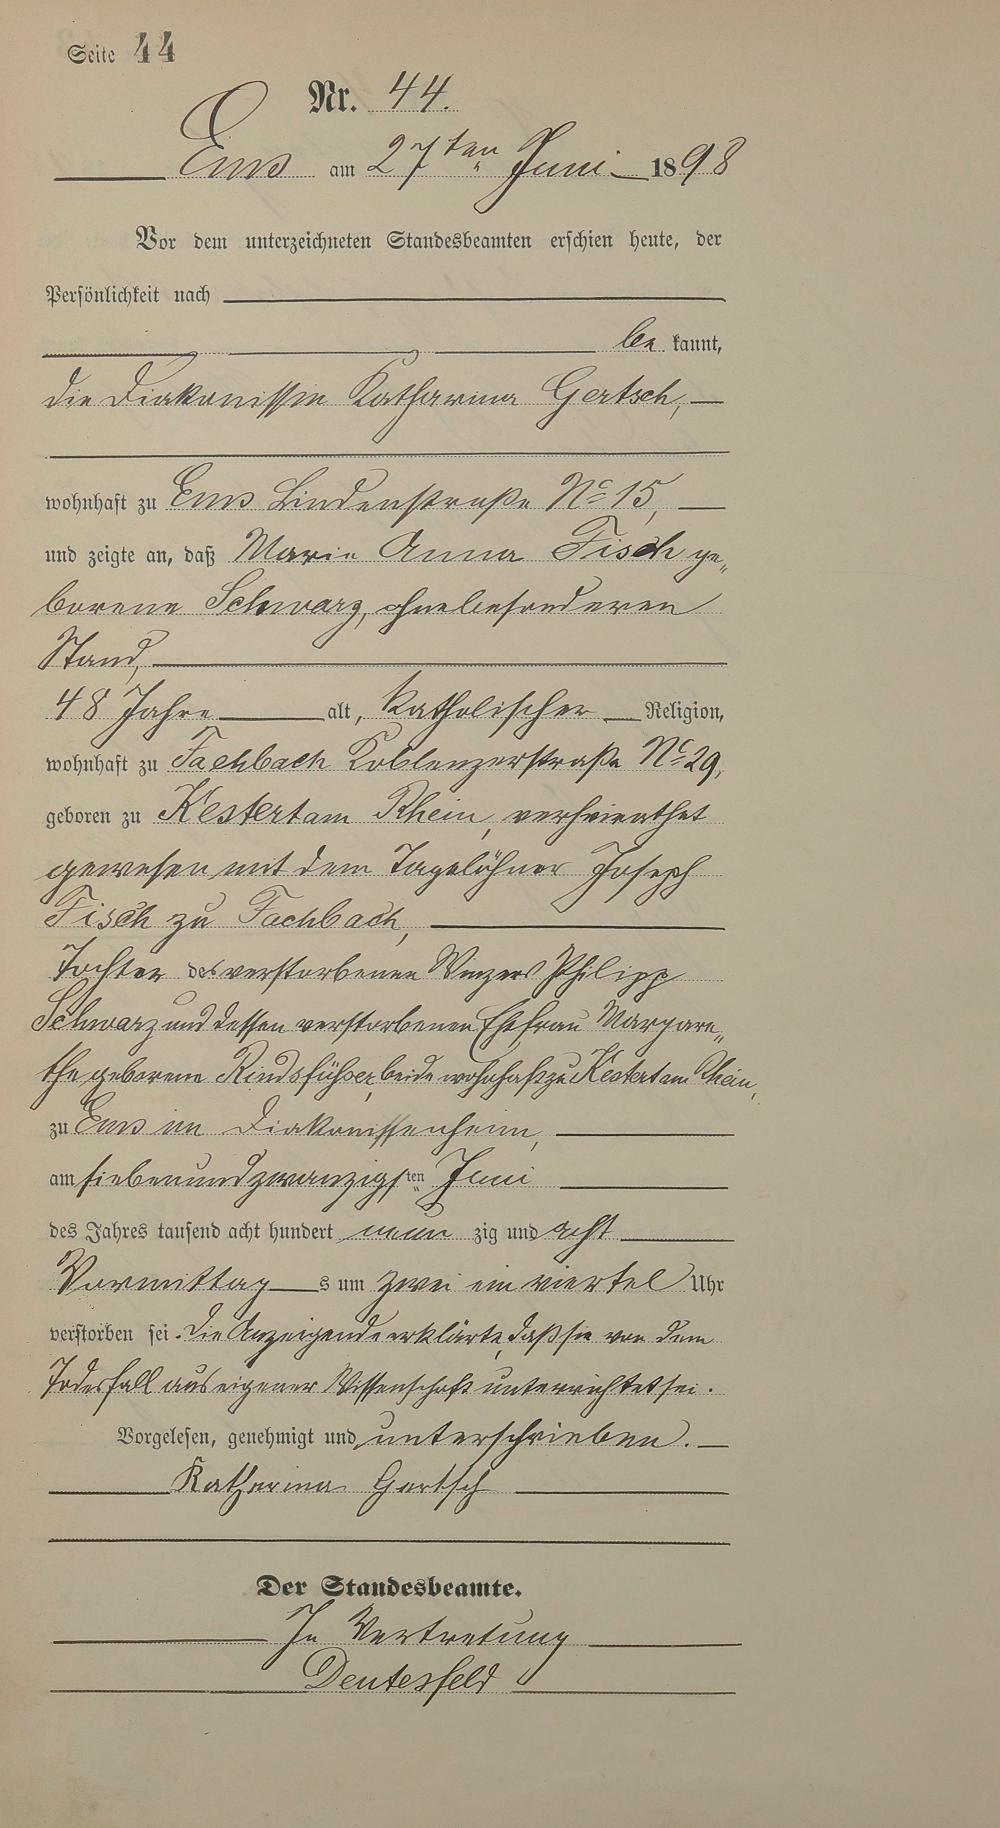 Seite 44
Nr. 44.
Ems am 27ten Juni 1898
Vor dem unterzeichneten Standesbeamten erschien heute, der
Persönlichkeit nach
be kannt,
die Diakonissin Katharina Gertsch,
wohnhaft zu Ems Lindenstraße No 15,
und zeigte an, daß Marie Anna Fisch ge„
borene Schwarz, ohne besonderen
Stand,
48 Jahre alt, katholischer Religion,
wohnhaft zu Fachbach Koblenzerstraße No 29,
geboren zu Kestert am Rhein, verheirathet
gewesen mit dem Tagelöhner Joseph
Fisch zu Fachbach,
Tochter des verstorbenen Winzers Philipp
Schwarz und dessen verstorbenen Ehefrau Margare„
the geborene Rindsfüßer, beide wohnhaft zu Kestert am Rhein,
zu Ems im Diakonissenheim,
am siebenundzwanzigsten Juni
des Jahres tausend acht hundert neun zig und acht
Vormittag s um zwei ein viertel Uhr
verstorben sei. Die Anzeigende erklärte, daß sie von dem
Todesfall aus eigener Wissenschaft unterrichtet sei.
Vorgelesen, genehmigt und unterschrieben.
Katharina Gertsch
Der Standesbeamte.
In Vertretung
Deutesfeld